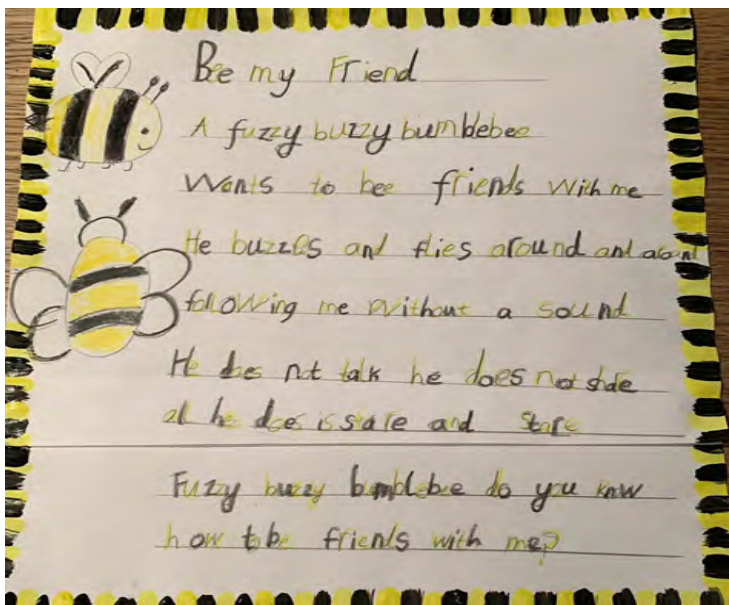 Bee my Friend
A fuzzy buzzy bumblebee
Wants to bee friends with me
He buzzes and flies around and around
following me without a sound
He does not talk he does not share
all he does is stare and stare
Fuzzy buzzy bumblebee do you know
how to be friends with me?